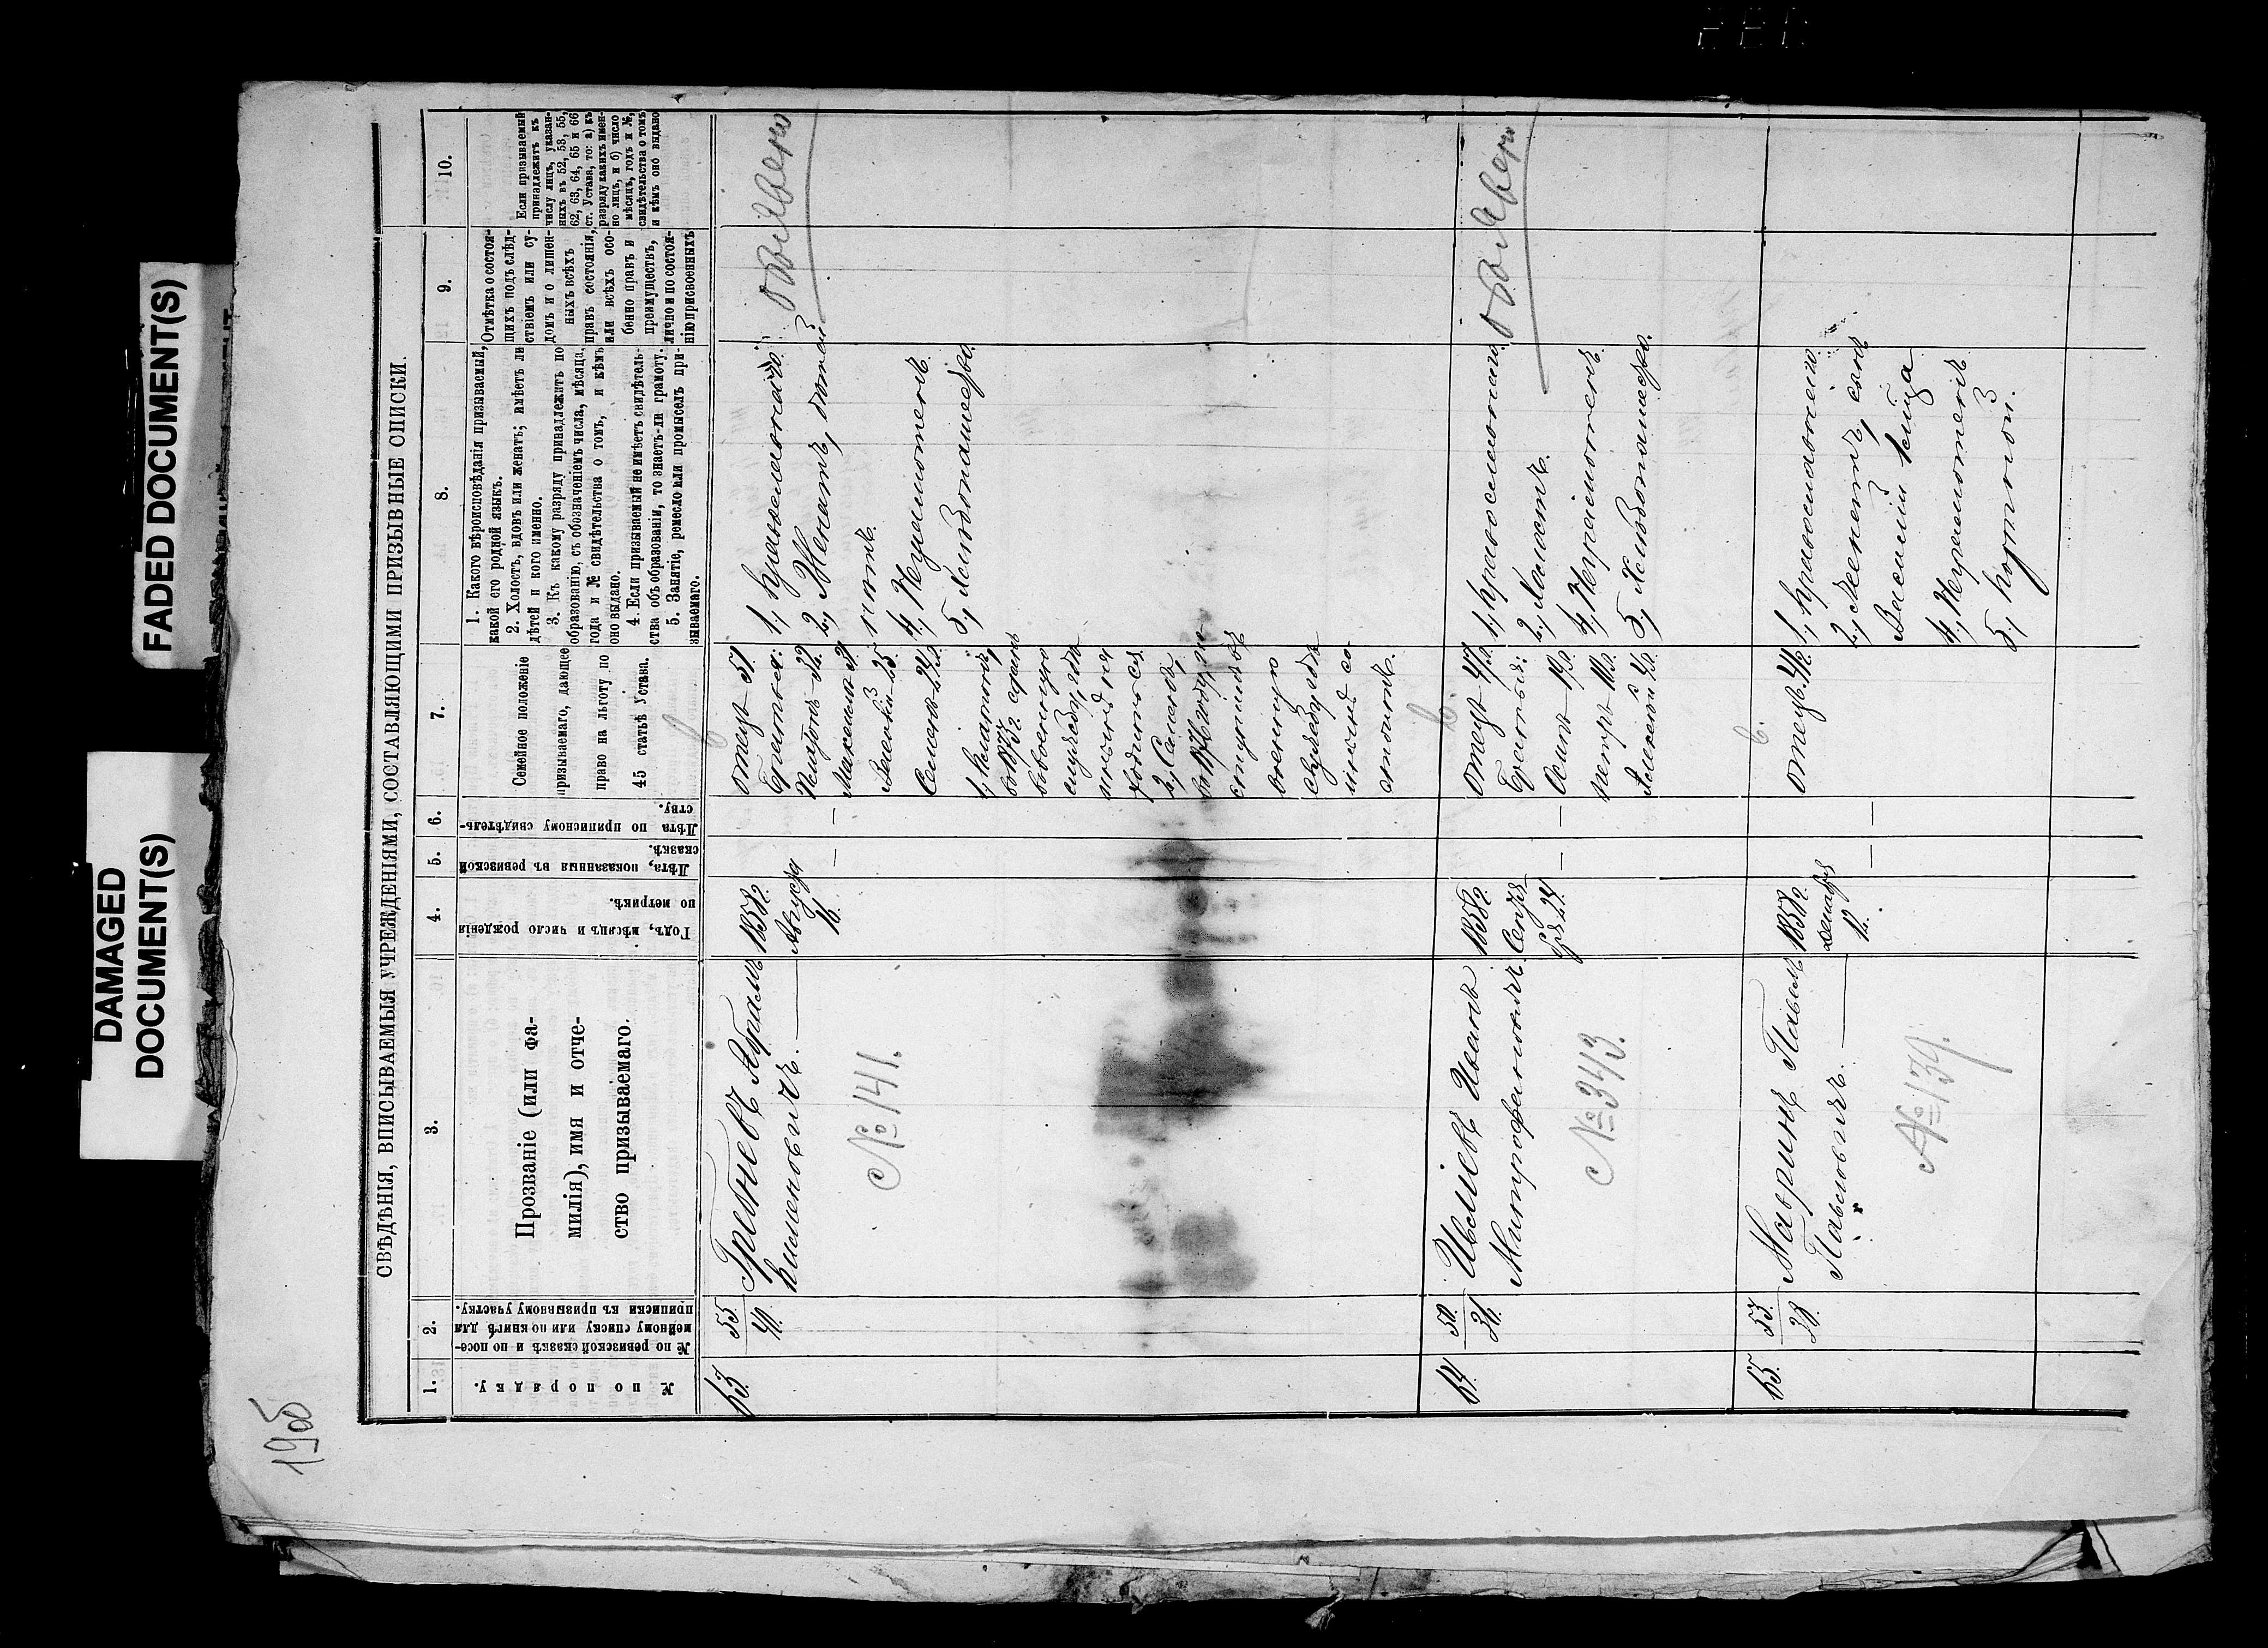 FADED DOCUMENT(S)
DAMAGED
DOCUMENT(S)
19об
СВѢДѢНІЯ, ВПИСЫВАЕМЫЯ УЧРЕЖДЕНІЯМИ, СОСТАВЛЯЮЩИМИ ПРИЗЫВНЫЕ СПИСКИ.
1.
2.
3.
4.
5.
6.
7.
8.
9.
10.
№ по порядку.
№ по ревизской сказкѣ и по посе-
мейному списку или по книгѣ для
приписки къ призывному участку.
Прозваніе (или фа-
милія), имя и отче-
ство призываемаго.
Годъ, мѣсяцъ и число рожденія
по метрикѣ.
Лѣта, показанныя въ ревизской
сказкѣ.
Лѣта по приписному свидѣтель-
ству.
Семейное положеніе
призываемаго, дающее
право на льготу по
45 статьѣ Устава.
1. Какого вѣроисповѣданія призываемый,
какой его родной языкъ.
2. Холостъ, вдовъ или женатъ; имѣетъ ли
дѣтей и кого именно.
3. Къ какому разряду принадлежитъ по
образованію, съ обозначеніемъ числа, мѣсяца,
года и № свидѣтельства о томъ, и кѣмъ
оно выдано.
4. Если призываемый не имѣетъ свидѣтель-
ства объ образованіи, то знаетъ-ли грамоту.
5. Занятіе, ремесло или промыселъ при-
зываемаго.
Отмѣтка о состоя-
щихъ подъ слѣд-
ствіемъ или су-
домъ и о лишен-
ныхъ всѣхъ
правъ состоянія,
или всѣхъ осо-
бенно правъ и
преимуществъ,
лично и по состоя-
нію присвоенныхъ
Если призываемый
принадлежитъ къ
числу лицъ, указан-
ныхъ въ 52, 53, 55,
62, 63, 64, 65 и 66
ст. Устава, то: а) къ
разряду какихъ имен-
но лицъ, и б) число
мѣсяцъ, годъ и №,
свидѣтельства о томъ
и кѣмъ оно выдано
63.
55.
40.
Гребневъ Абрамъ
Клименовичъ.
№ 141.
1858г.
Августа
16.
—
—
отецъ 51.
Братья:
Платонъ 32.
Максимъ 31
Василій 25.
Семенъ 22.
1, Платонъ,
въ военную
службу, гдѣ
2, Семенъ,
въ 1876 году, по
военную
службу, гдѣ
1, Православнаго.
2, Женатъ, дѣтей
нѣтъ.
4, Неграмотенъ
5, Хлѣбопашество.
64.
50.
36.
Ивлиевъ Иванъ
Митрофановичъ.
№ 343.
1858г.
Сентя-
бря 24
—
—
отецъ 47.
Братья:
Осипъ 19.
Петръ 10.
Алексѣй 4.
1, Православнаго.
2, Холостъ.
4, Неграмотенъ.
5, Хлѣбопашество.
65.
53.
38.
Мавринъ Павелъ
Павловичъ.
№ 139.
1858г.
Декабря
12.
—
—
отецъ 44.
1, Православнаго.
2, Женатъ, сынъ
4, Неграмотенъ
5, Портной.